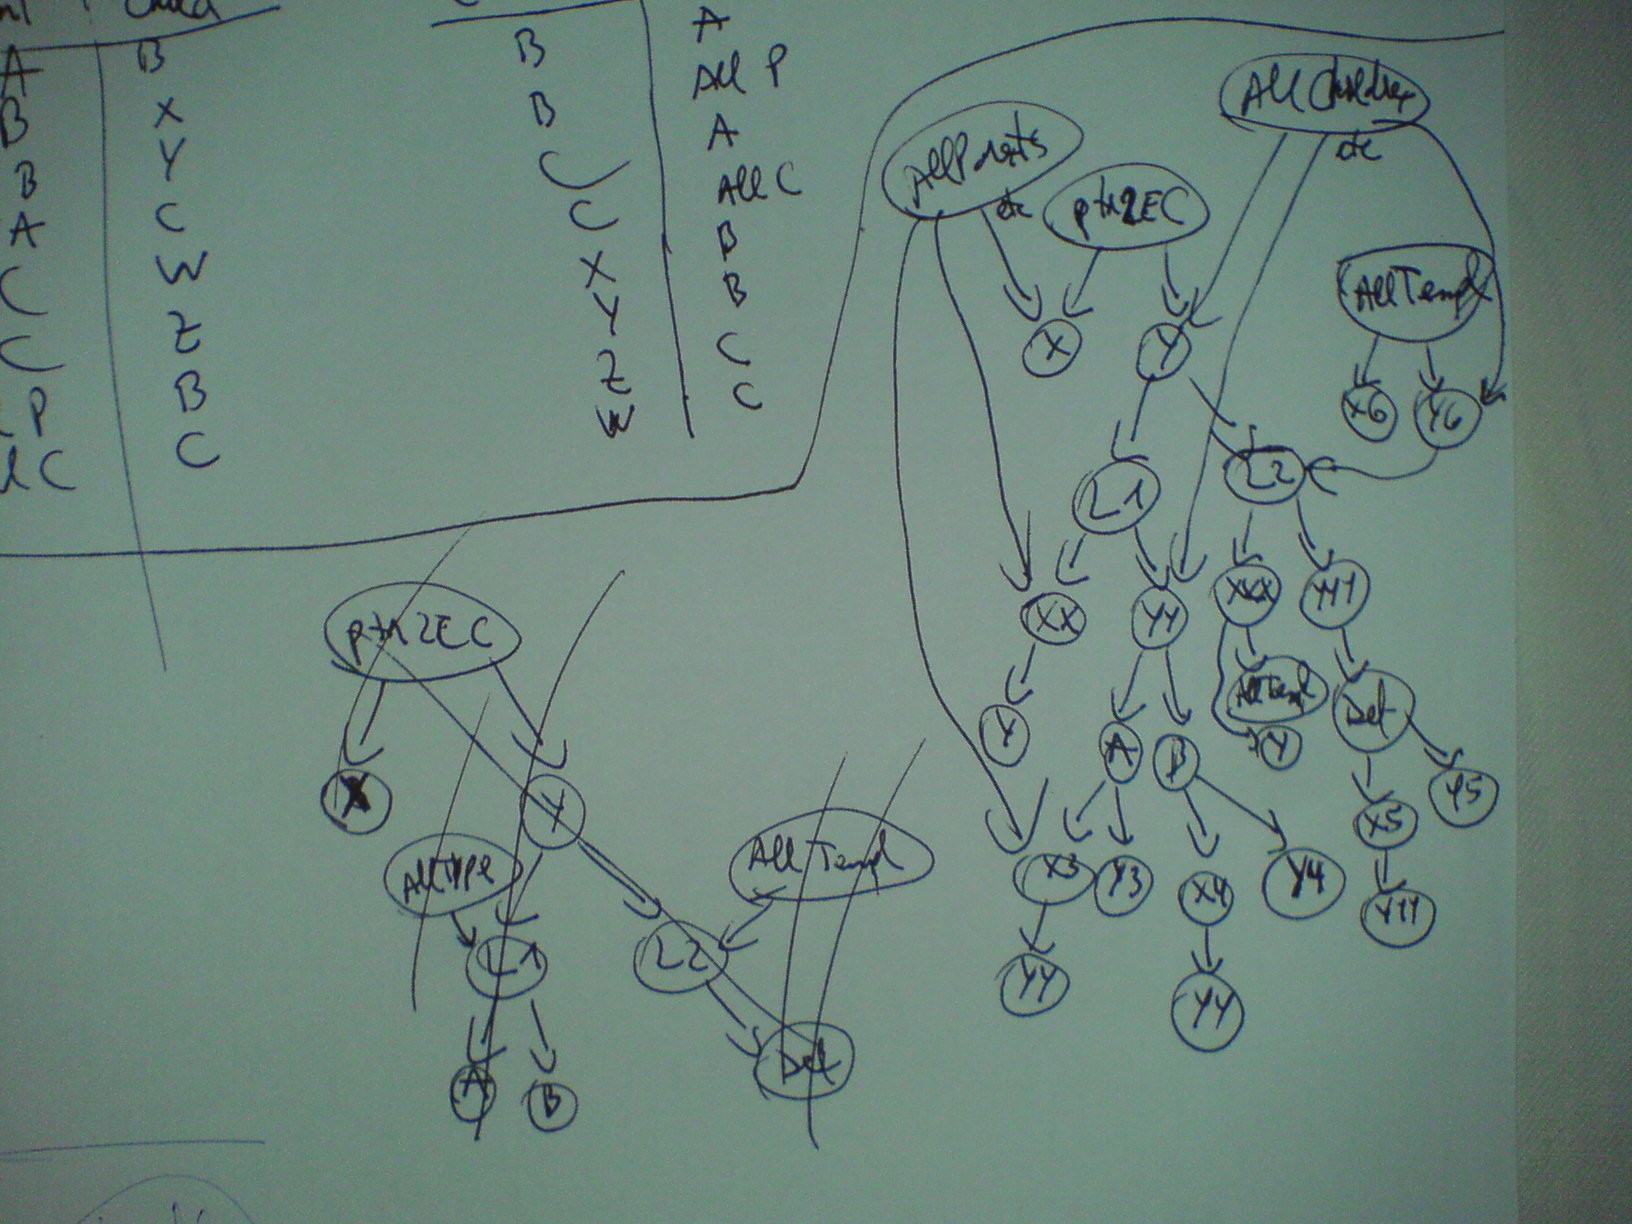 Child
A B
B X
B Y
A C
C W
C Z
P B
C C
B A
B All P
C A
C All C
X B
Y B
Z C
W C
All Children
etc
etc
ptr2EC
All Templ
X
Y
X6
Y6
L1
L2
XX
YY
XXX
YYY
Y
A
B
All Templ
Y
Det
X5
Y5
X3
Y3
X4
Y4
YYY
YY
YY
ptr2EC
X
Y
All Type
All Templ
L1
L2
A
B
Det